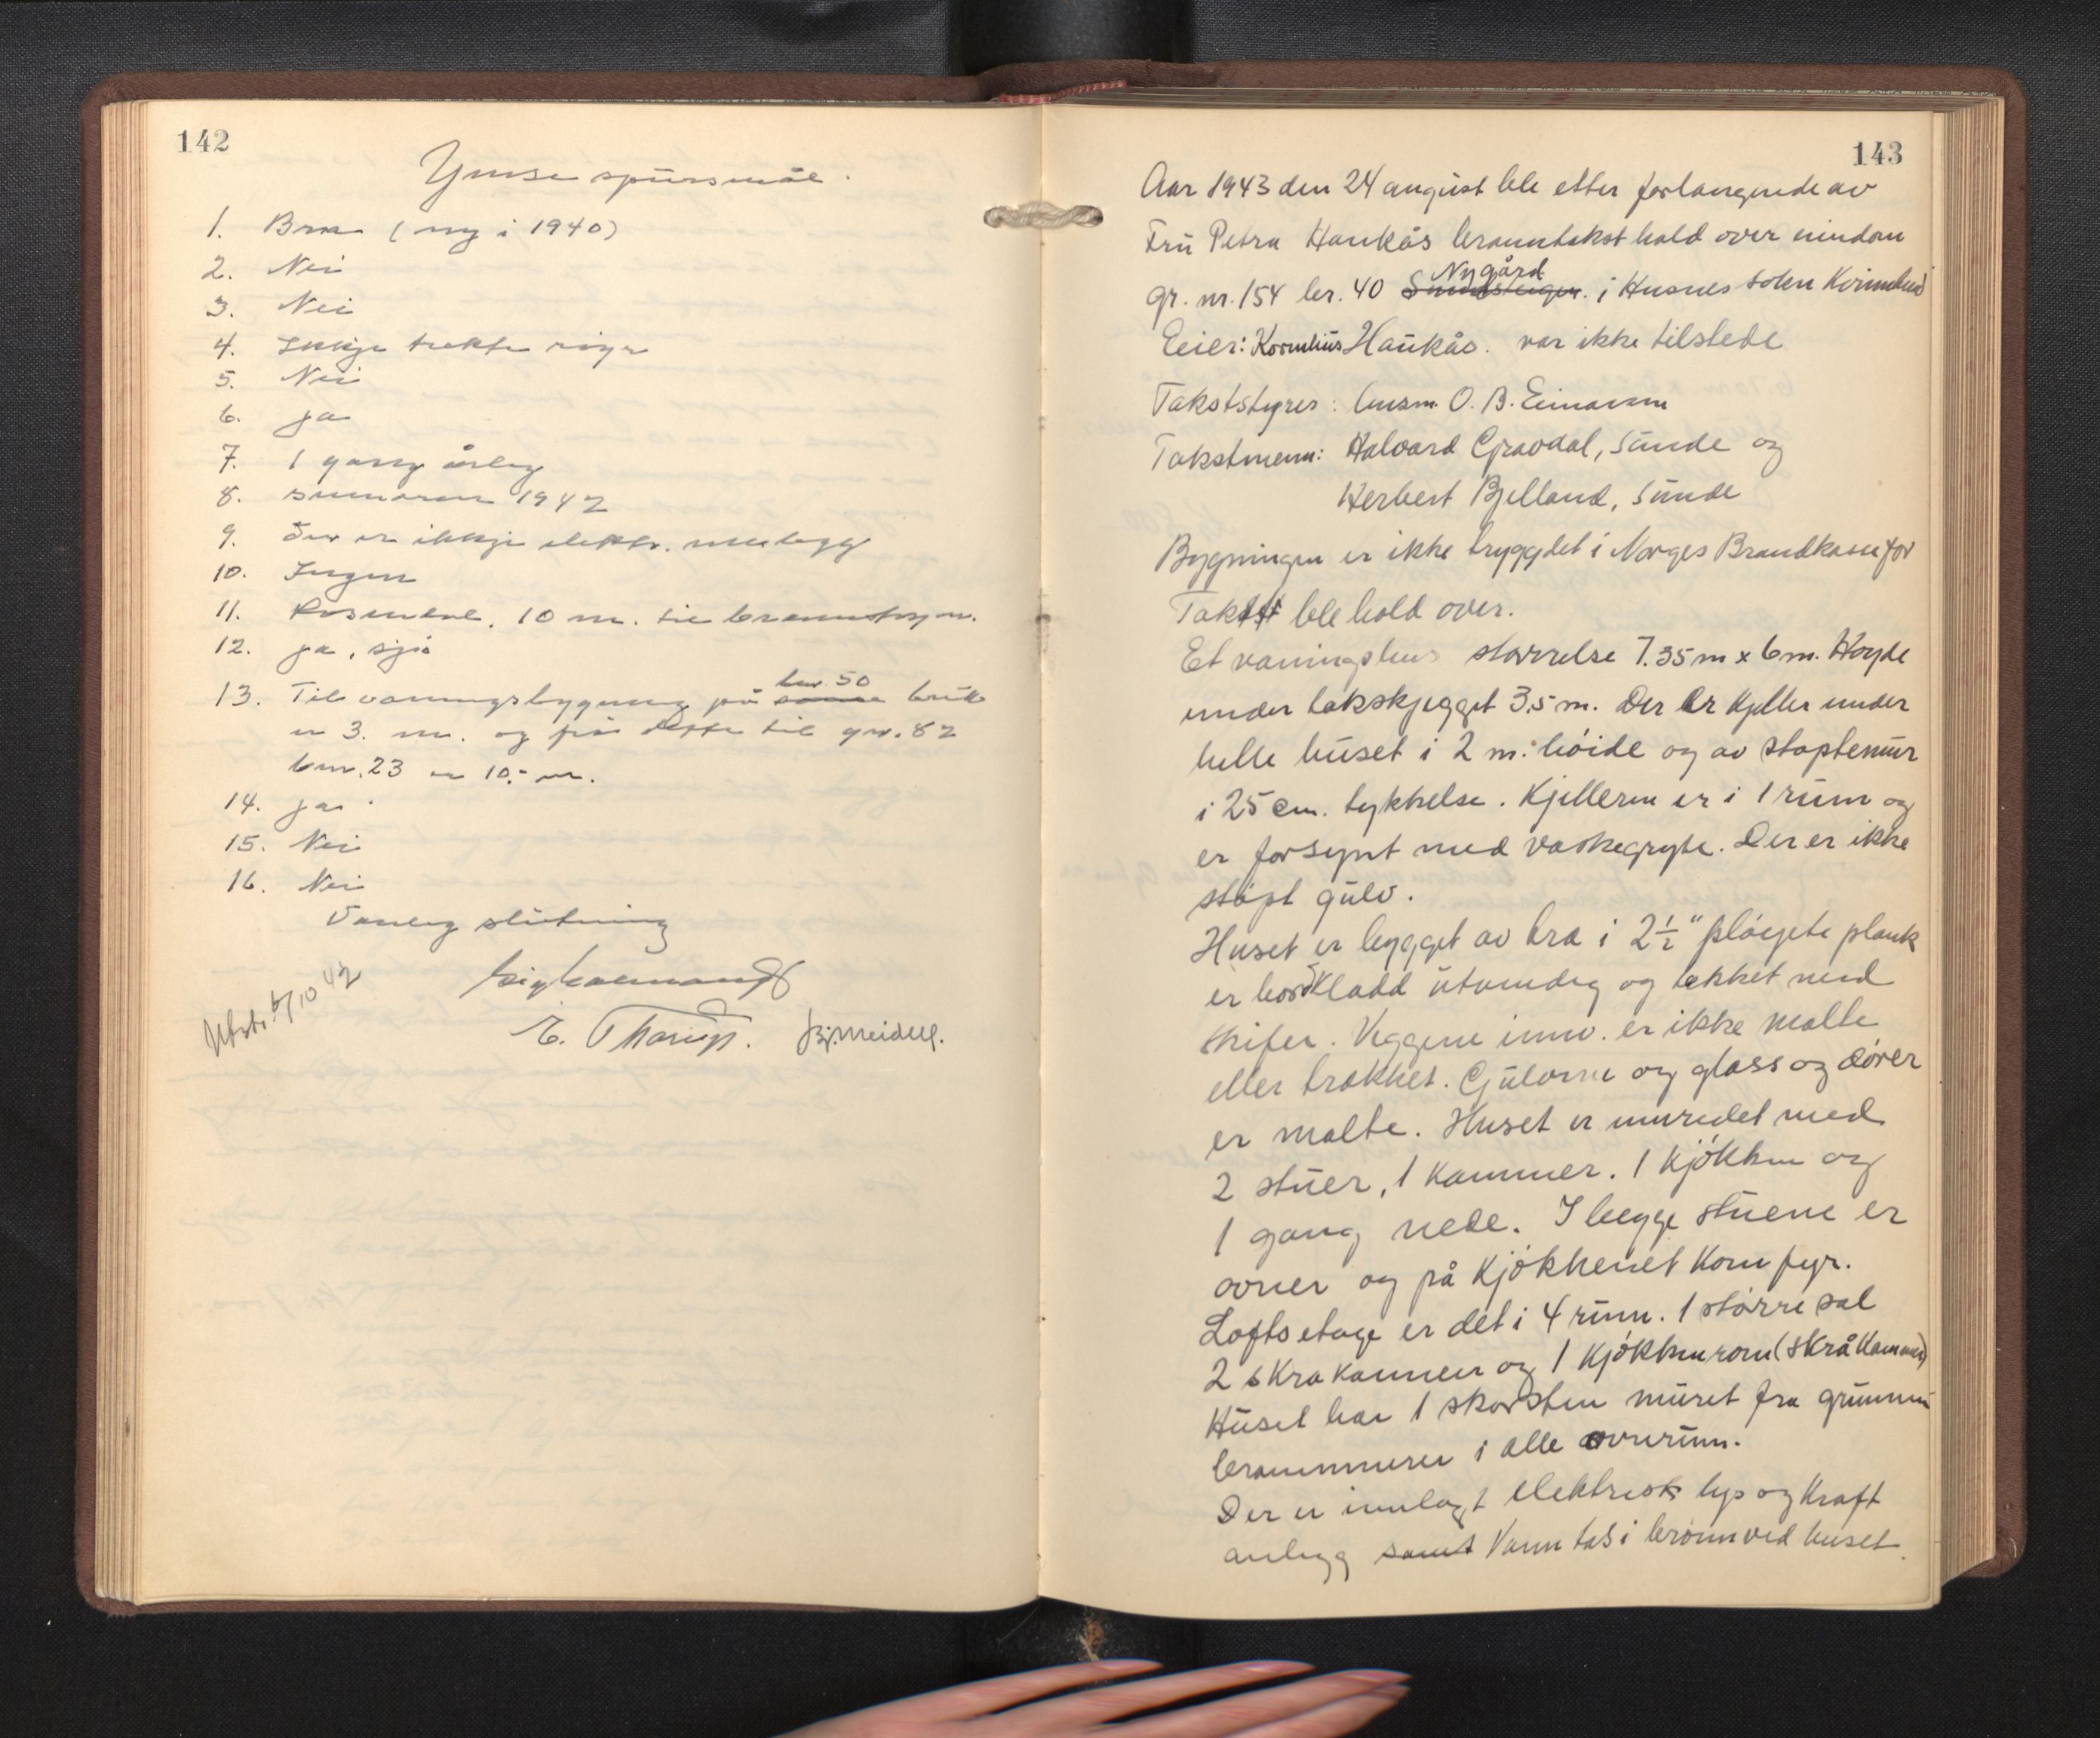 142
Ymse spursmål.
1. Bra (ny i 1940)
2. Nei
3. Nei
4. Ikkje trekte røyr
5. Nei
6. Ja
7. 1 gang årleg
8. sumaren 1942
9. Der er ikkje elektr. innlegg
10. Ingen
11. Rosendal. 10 m. til
12. Ja, sjø
13. Til vaningsbygning på same bnr 50 bruk
er 3. m. og frå dette til gnr. 82
bnr. 23 er 10.- m.
14. Ja.
15. Nei
16. Nei
Vanleg slitning
Utskr. 5/10 42
E. Thorup. Bj. Meidell.
143
Aar 1943 den 24 august ble etter forlangende av
Fru Petra Haukås branntakst hold over eiendom
gr. nr. 154 br. 40 Nygård i Husnes sokn Kvinnherad
Eeier: Kornelius Haukås. var ikke tilstede
Takststyrer: lensm. O. B. Einarsen
Takstmenn: Halvard Gravdal, Sunde og
Herbert Bjelland, Sunde
Bygningen er ikke trygdet i Norges Brandkasse før
Takst ble hold over.
Et vaningshus storrelse 7.35 m x 6 m. Høyde
under takskjegget 3.5 m. Der er kjeller under
helle huset i 2 m. høide og av støptemur
i 25 cm. tykkelse. Kjelleren er i 1 rum og
er forsynt med vaskegryte. Der er ikke
støpt gulv.
Huset er bygget av tra i 2½" pløgete plank
er bordkladd utvendig og tekket med
skifer. Veggene innv. er ikke malte
eller trekket. Gulvene og glass og dører
er malte. Huset er innredet med
2 stuer, 1 kammer. 1 kjøkken og
1 gang nede. I begge stuene er
ovner og på kjøkkenet komfyr.
Loftsetage er det i 4 rum. 1 større sal
2 skra kammer og 1 kjøkkenrom (skråkammer)
Huset har 1 skorsten muret fra grunnen
brannmurer i alle ovnrum.
Der er innlagt elektrisk lys og kraft
anlegg samt Vann tas i brønn ved huset.